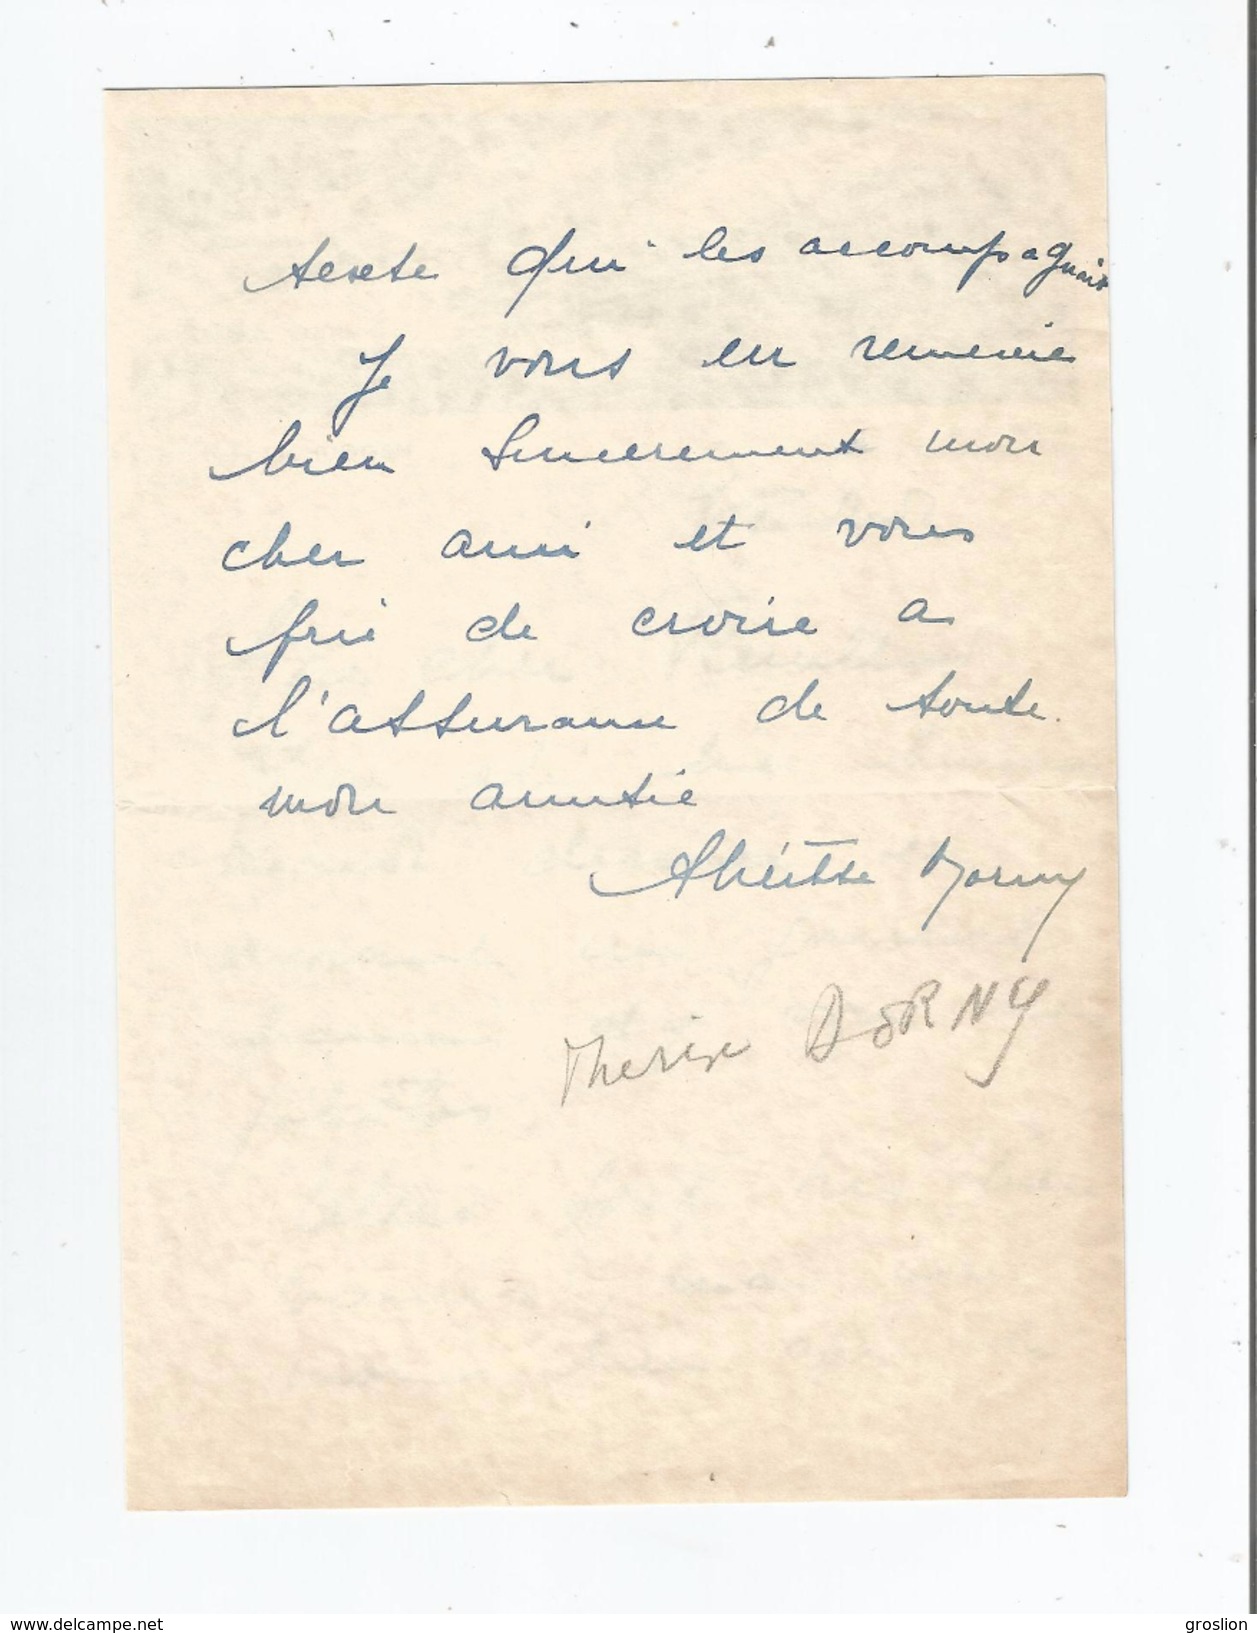 texte qui les accompagnait
Je vous en remercie
bien sincerement mon
cher ami et vous
prie de croire a
l'assurance de toute
mon amitié
Dorny
Therese DORNY
www.delcampe.net
groslion